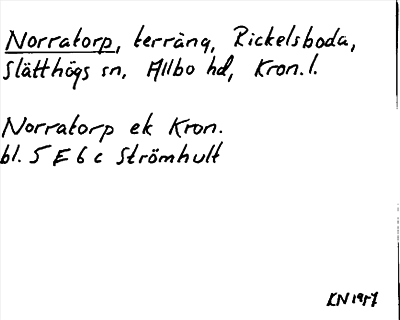 Norratorp, terräng, Rickelsboda,
Slätthögs sn, Allbo hd, Kron. l.
Norratorp ek Kron.
bl. 5 E 6 c Strömhult
KN